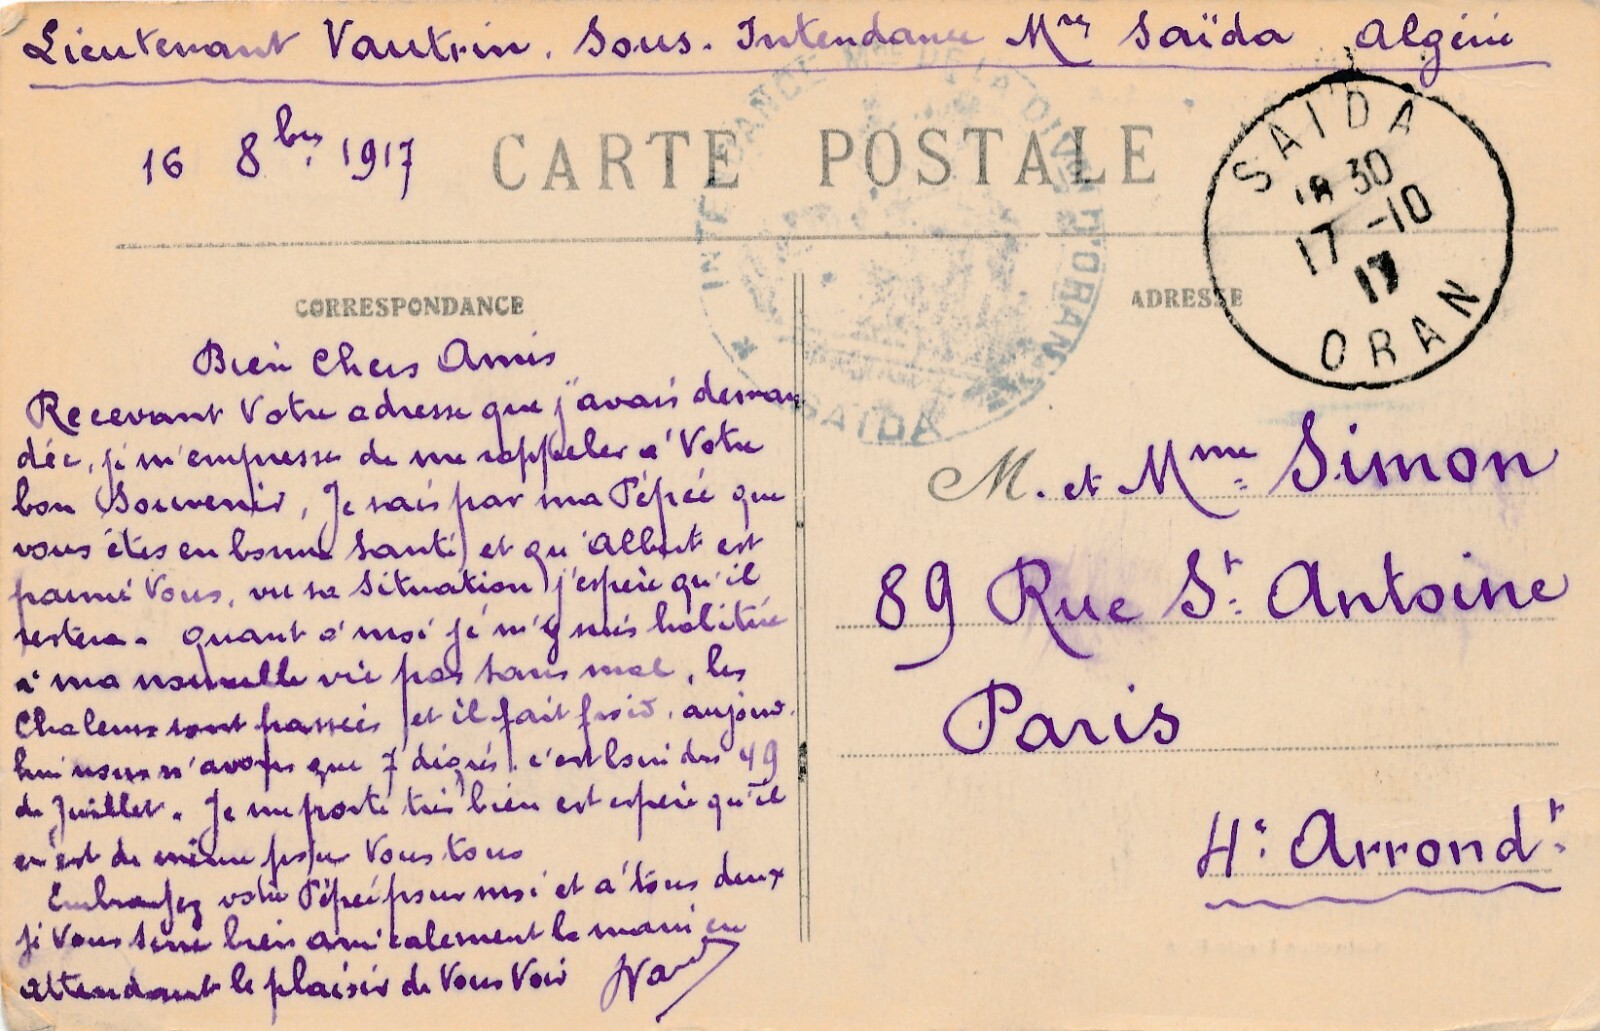 Lieutenant Vautrin. Sous-Intendance Mre Saïda Algérie
16 8bre 1917
CARTE POSTALE
INTENDANCE Mre DE LA DIVon D'ORAN
SAÏDA
SAIDA
18 30
17-10
17
ORAN
CORRESPONDANCE
ADRESSE
Bien Chers Amis
Recevant Votre adresse que j'avais deman
dée, je m'empresse de me rappeler à Votre
bon Souvenir, Je sais par ma Pépée que
vous êtes en bonne Santé et qu'Albert est
parmi Vous, vu sa Situation j'espère qu'il
restera. Quant à moi je m'y suis habitué
à ma nouvelle vie pas sans mal, les
Chaleurs sont passées et il fait froid, aujourd.
hui nous n'avons que 7 degrés, c'est loin des 49
de Juillet. Je me porte très bien et espère qu'il
en est de même pour Vous tous
Embrassez votre Pépée pour moi et à tous deux
je Vous serre bien amicalement la main en
attendant le plaisir de Vous Voir
M. et Mme Simon
89 Rue St. Antoine
Paris
4e Arrondt.